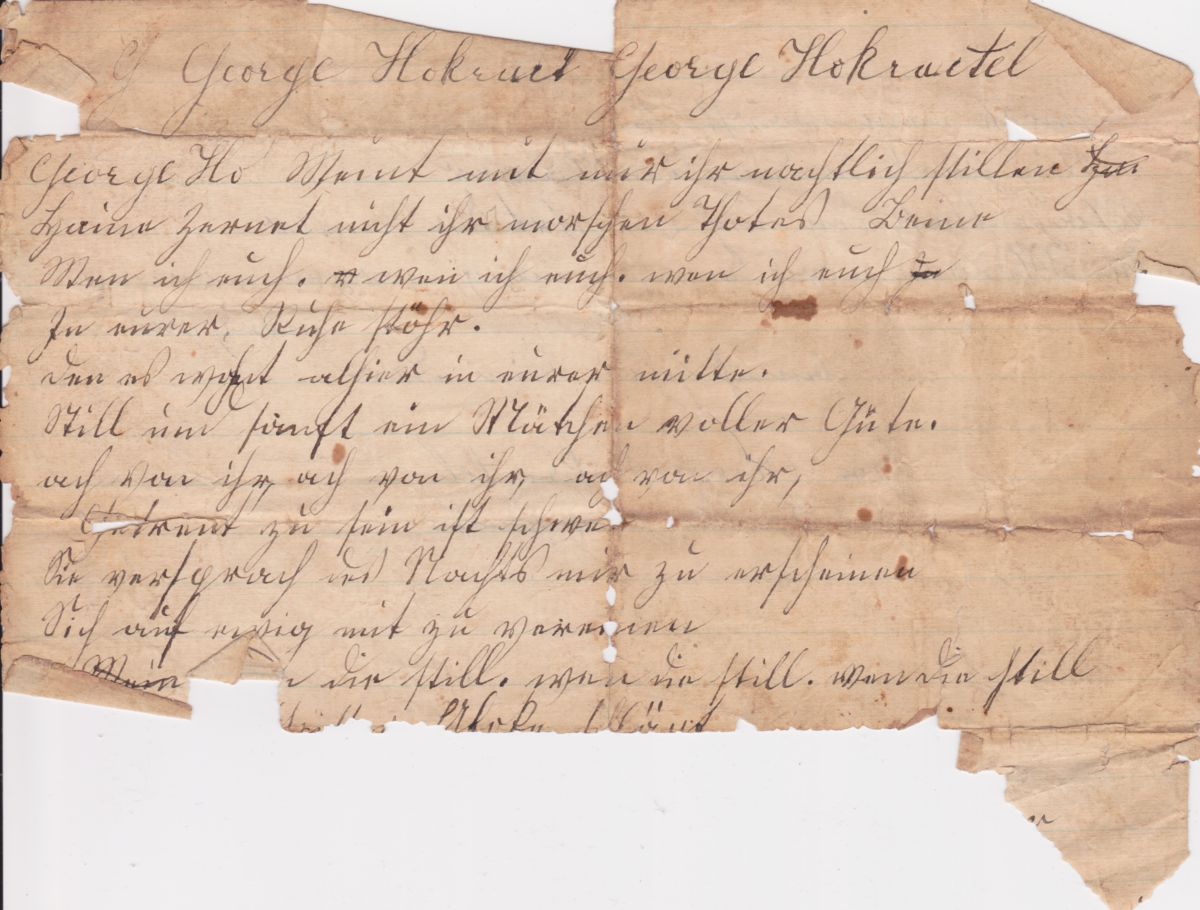 G George Hokraet George Hokraetel
George Ho Weint mit mir ihr nachtlich stillen Hai
Haine Zernet nicht ihr morschen Thotes Beine
Wen ich euch. wen ich euch. wen ich euch In
In eurer. Ruhe stöhr.
den es wohnt alhier in eurer mitte.
Still und sanft ein Mätchen voller Güte.
ach von ihr, ach von ihr, ach von ihr,
Getrent zu sein ist schwer
Sie versprach des Nachts mir zu erscheinen
Sich auf ewig mit zu vereinen
Wen die still. wen die still. wen die still
Gloke schlägt